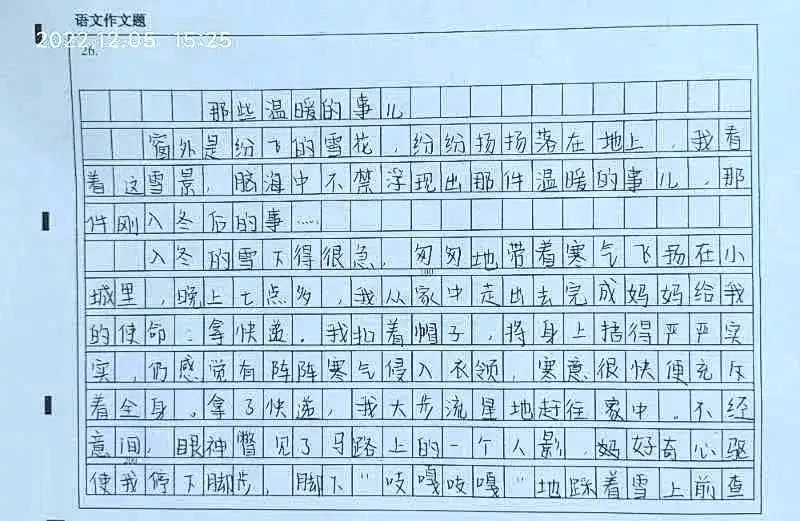 语文作文题
2022.12.05 15:25
26.
那些温暖的事儿
窗外是纷飞的雪花，纷纷扬扬落在地上，我看
着这雪景，脑海中不禁浮现出那件温暖的事儿，那
件刚入冬后的事……
入冬的雪下得很急，匆匆地带着寒气飞扬在小
100
城里，晚上七点多，我从家中走出去完成妈妈给我
的使命：拿快递。我扣着帽子，将身上捂得严严实
实，仍感觉有阵阵寒气侵入衣领，寒意很快便充斥
着全身。拿了快递，我大步流星地赶往家中。不经
意间，眼神瞥见了马路上的一个人影，好奇心驱
200
使我停下脚步，脚下"吱嘎吱嘎"地踩着雪上前查